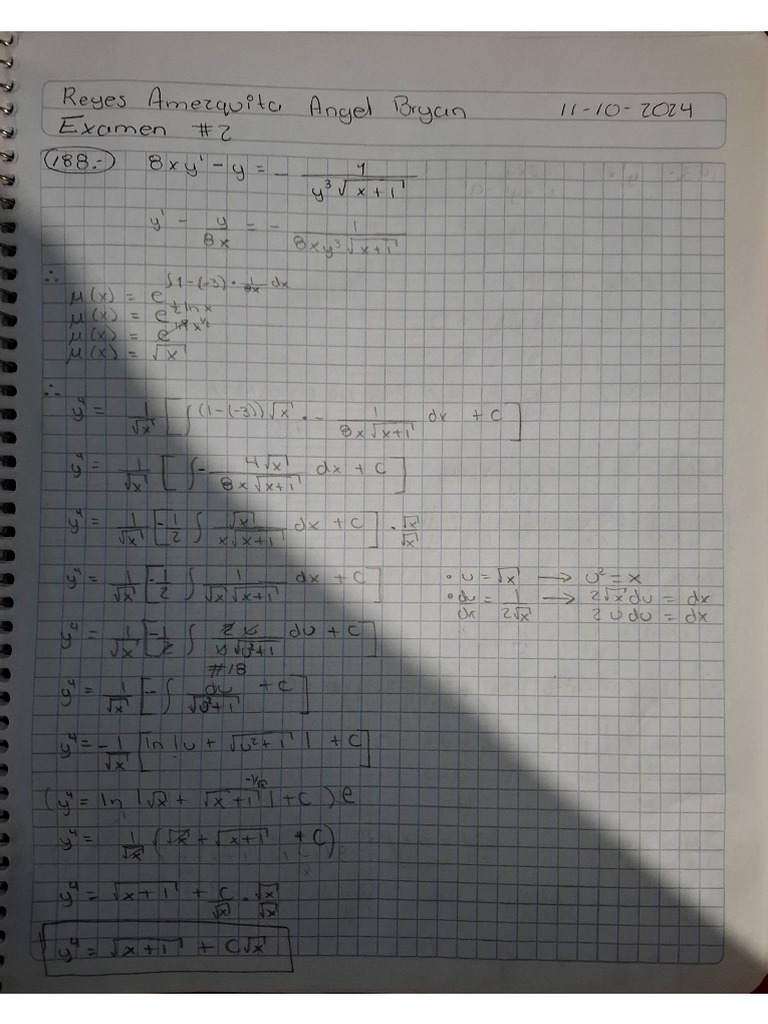 Reyes Amezquita Angel Bryan 11-10-2024
Examen #2
188.- 8xy' - y = - 1/(y³√(x+1))
y' - y/(8x) = - 1/(8xy³√(x+1))
∴
μ(x) = e^(∫1-(-3)·1/(8x) dx)
μ(x) = e^(½ ln x)
μ(x) = e^(ln x^½)
μ(x) = √x
∴
y⁴ = 1/√x [∫(1-(-3))√x · - 1/(8x√(x+1)) dx + C]
y⁴ = 1/√x [∫- 4√x/(8x√(x+1)) dx + C]
y⁴ = 1/√x [-1/2 ∫ √x/(x√(x+1)) dx + C] · √x/√x
y⁴ = 1/√x [-1/2 ∫ 1/(√x√(x+1)) dx + C] • u = √x → u² = x
• du/dx = 1/(2√x) → 2√x du = dx
2u du = dx
y⁴ = 1/√x [-1/2 ∫ 2u/(u√(u²+1)) du + C]
#18
y⁴ = 1/√x [-∫ du/√(u²+1) + C]
y⁴ = -1/√x [ln |u + √(u²+1)| + C]
(y⁴ = ln |√x + √(x+1)|^(-1/√x) + C) e
y⁴ = 1/√x (√x + √(x+1) + C)
y⁴ = √(x+1) + C/√x · √x/√x
y⁴ = √(x+1) + C√x